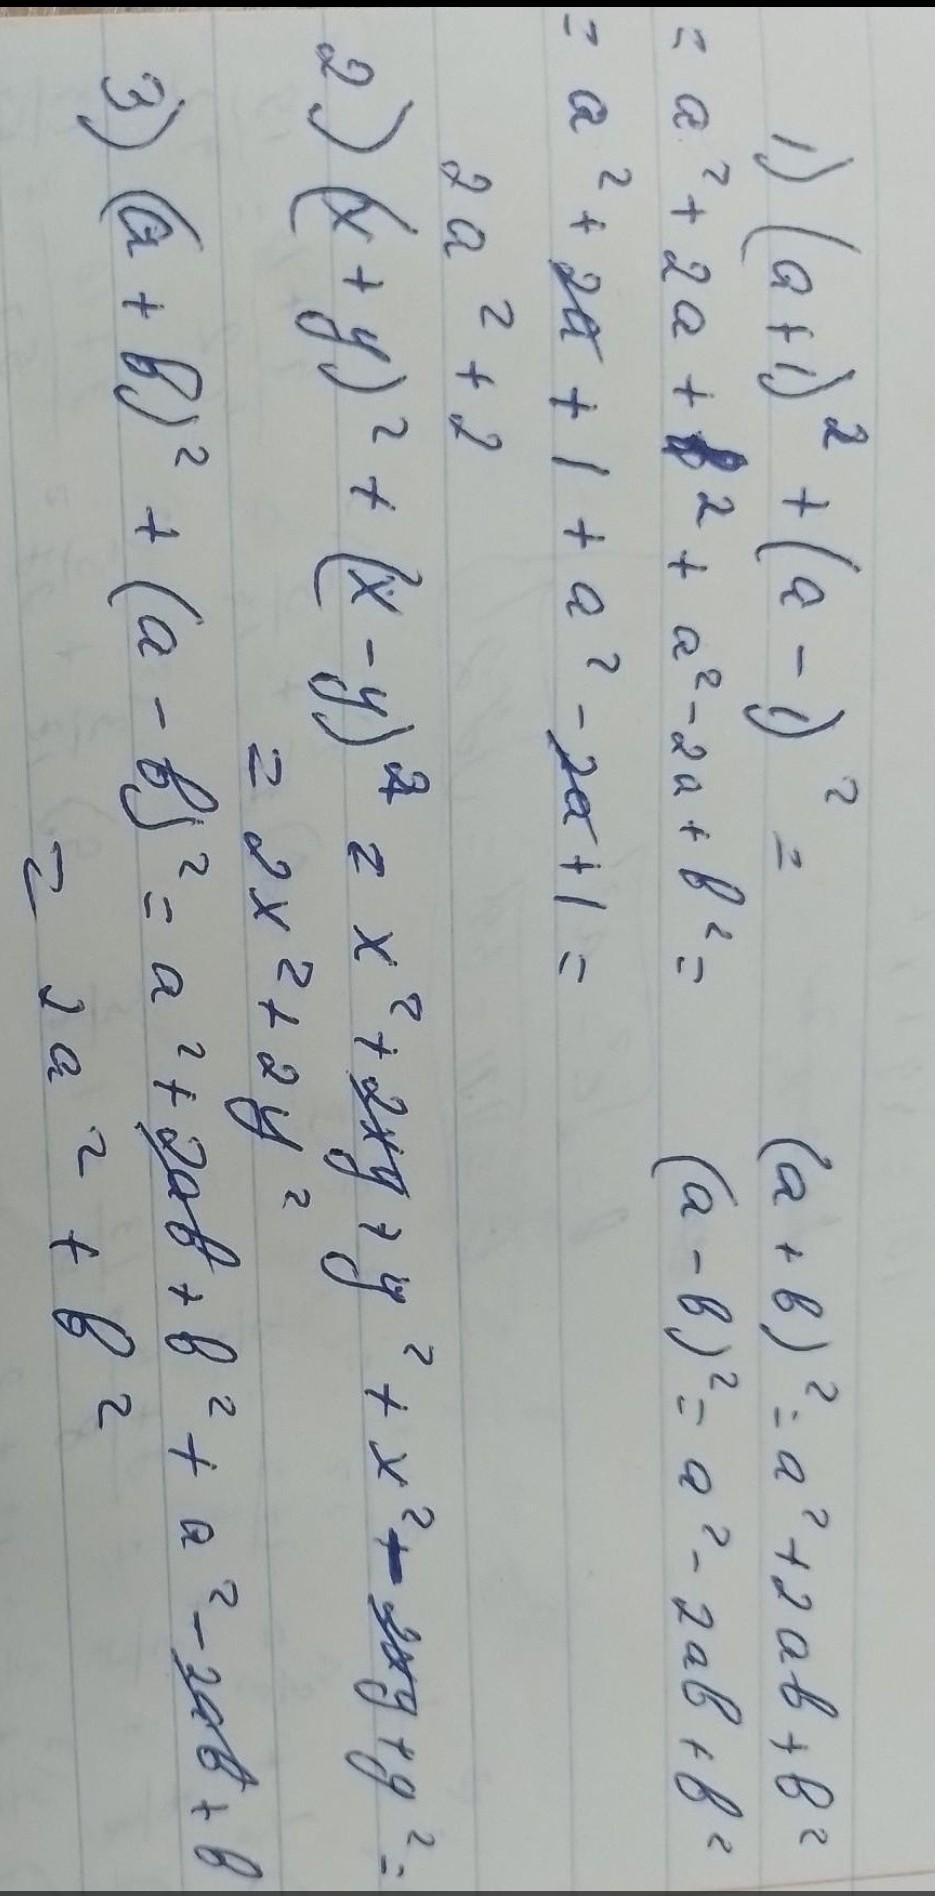 1) (a+1)² + (a-1)² =
(a+b)² = a²+2ab+b²
= a²+2a+b²+a²-2a+b² =
(a-b)² = a²-2ab+b²
= a²+2a+1+a²-2a+1 =
2a²+2
2) (x+y)² + (x-y)² = x²+2xy+y²+x²-2xy+y² =
= 2x²+2y²
3) (a+b)² + (a-b)² = a²+2ab+b²+a²-2ab+b
= 2a²+b²